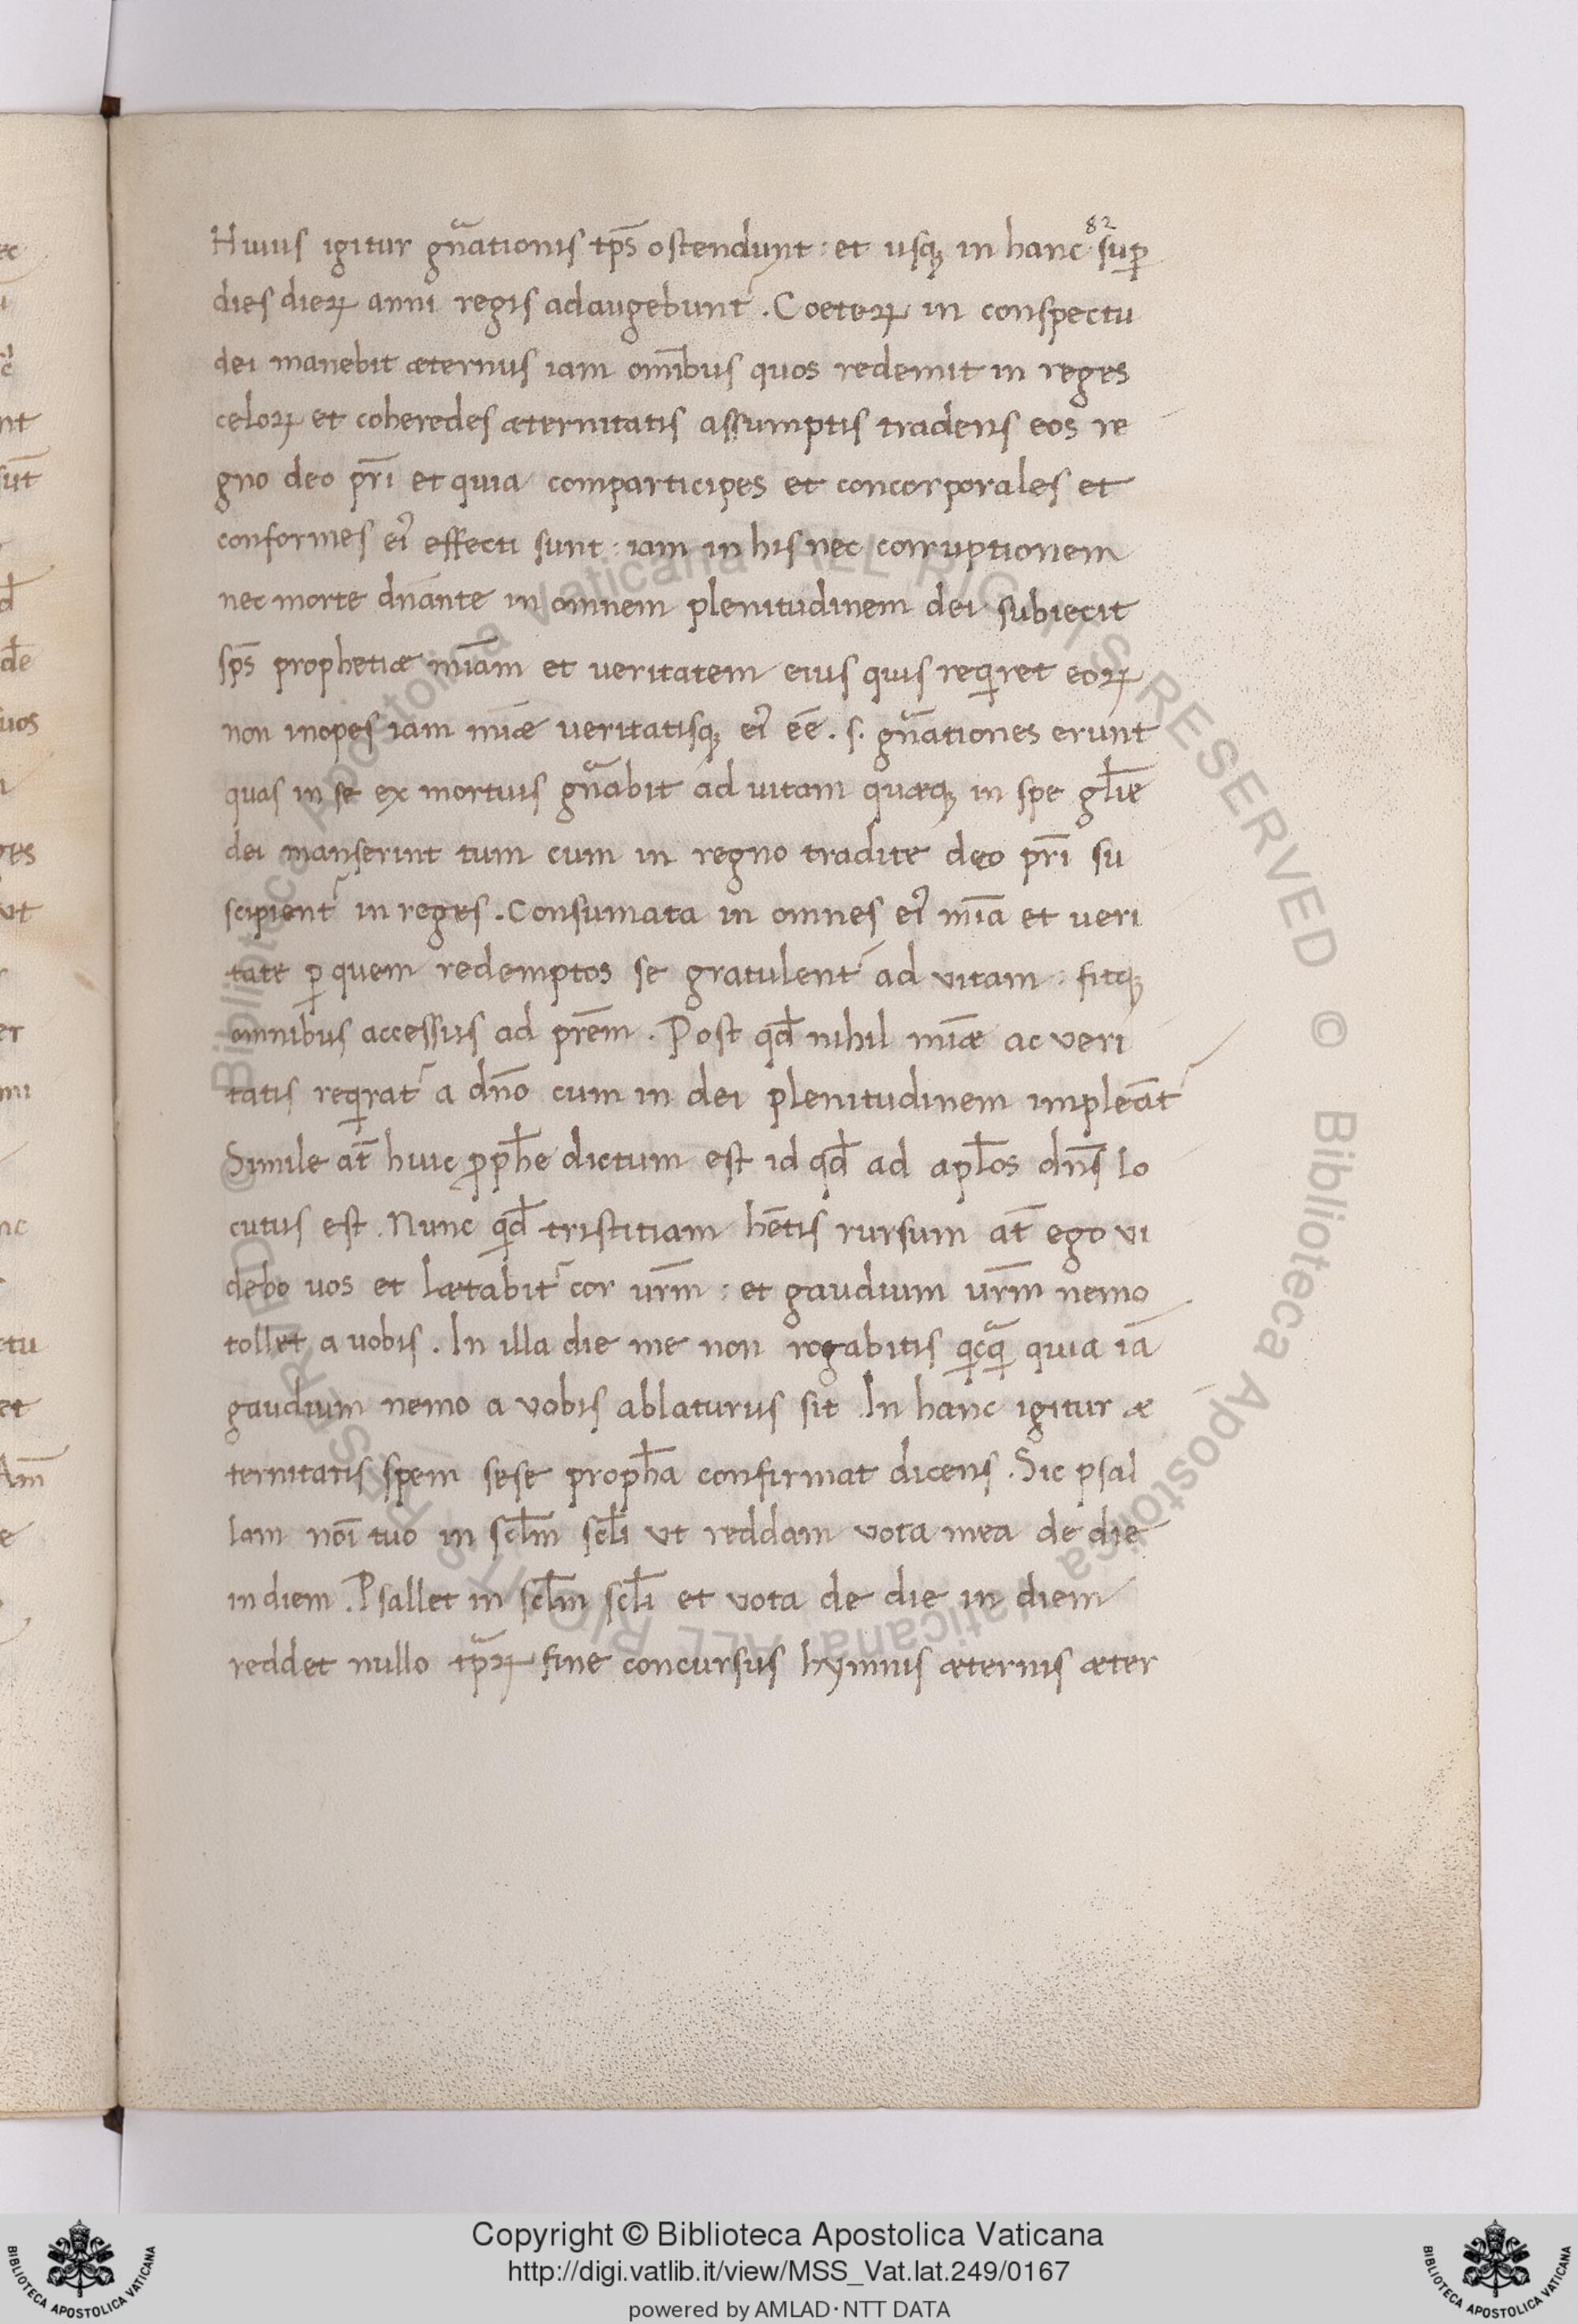 82
Huius igitur gñationis tp̄s ostendunt : et usq; in hanc sup̱
dies dieꝝ anni regis adaugebunt᷑ . Coeteꝝ in conspectu
dei manebit æternus iam om̄ibus quos redemit in reges
celoꝝ et coheredes æternitatis assumptis tradens eos re
gno deo pr̄i et quia comparticipes et concorporales et
conformes ei᷒ effecti sunt : iam in his nec corruptionem
nec morte dn̄ante in omnem plenitudinem dei subiecit
sp̄s prophetiæ mīam et veritatem eius quis reqiret eoꝝ
non inopes iam mīæ veritatisq; ei᷒ ēē . s. gñationes erunt
quas in se ex mortuis gñabit ad uitam quæq; in spe gl̄ie
dei manserint tum cum in regno tradite deo pr̄i su
scipient᷑ in reges . Consumata in omnes ei᷒ mīa et veri
tate ꝑ quem redemptos se gratulent᷑ ad vitam : fitq;
omnibus accessus ad pr̄em . Post qđ nihil mīæ ac veri
tatis reqirat᷑ a dn̄o cum in dei plenitudinem impleāt᷑
Simile at̄ huic ꝓph̄e dictum est id qđ ad apl̄os dn̄s lo
cutus est . Nunc qđ tristitiam hētis rursum at̄ ego vi
debo vos et lætabit᷑ cor ur̄m : et gaudium ur̄m nemo
tollet a uobis . In illa die me non rogabitis qicq̃ quia iā
gaudium nemo a vobis ablaturus sit . In hanc igitur æ
ternitatis spem sese proph̄a confirmat dicens . Sic psal
lam noī tuo in scl̄m scl̄i ut reddam vota mea de die
in diem . Psallet in scl̄m scl̄i et vota de die in diem
reddet nullo tp̄aꝝ fine concursus hymnis æternis æter
Copyright © Biblioteca Apostolica Vaticana
http://digi.vatlib.it/view/MSS_Vat.lat.249/0167
powered by AMLAD·NTT DATA